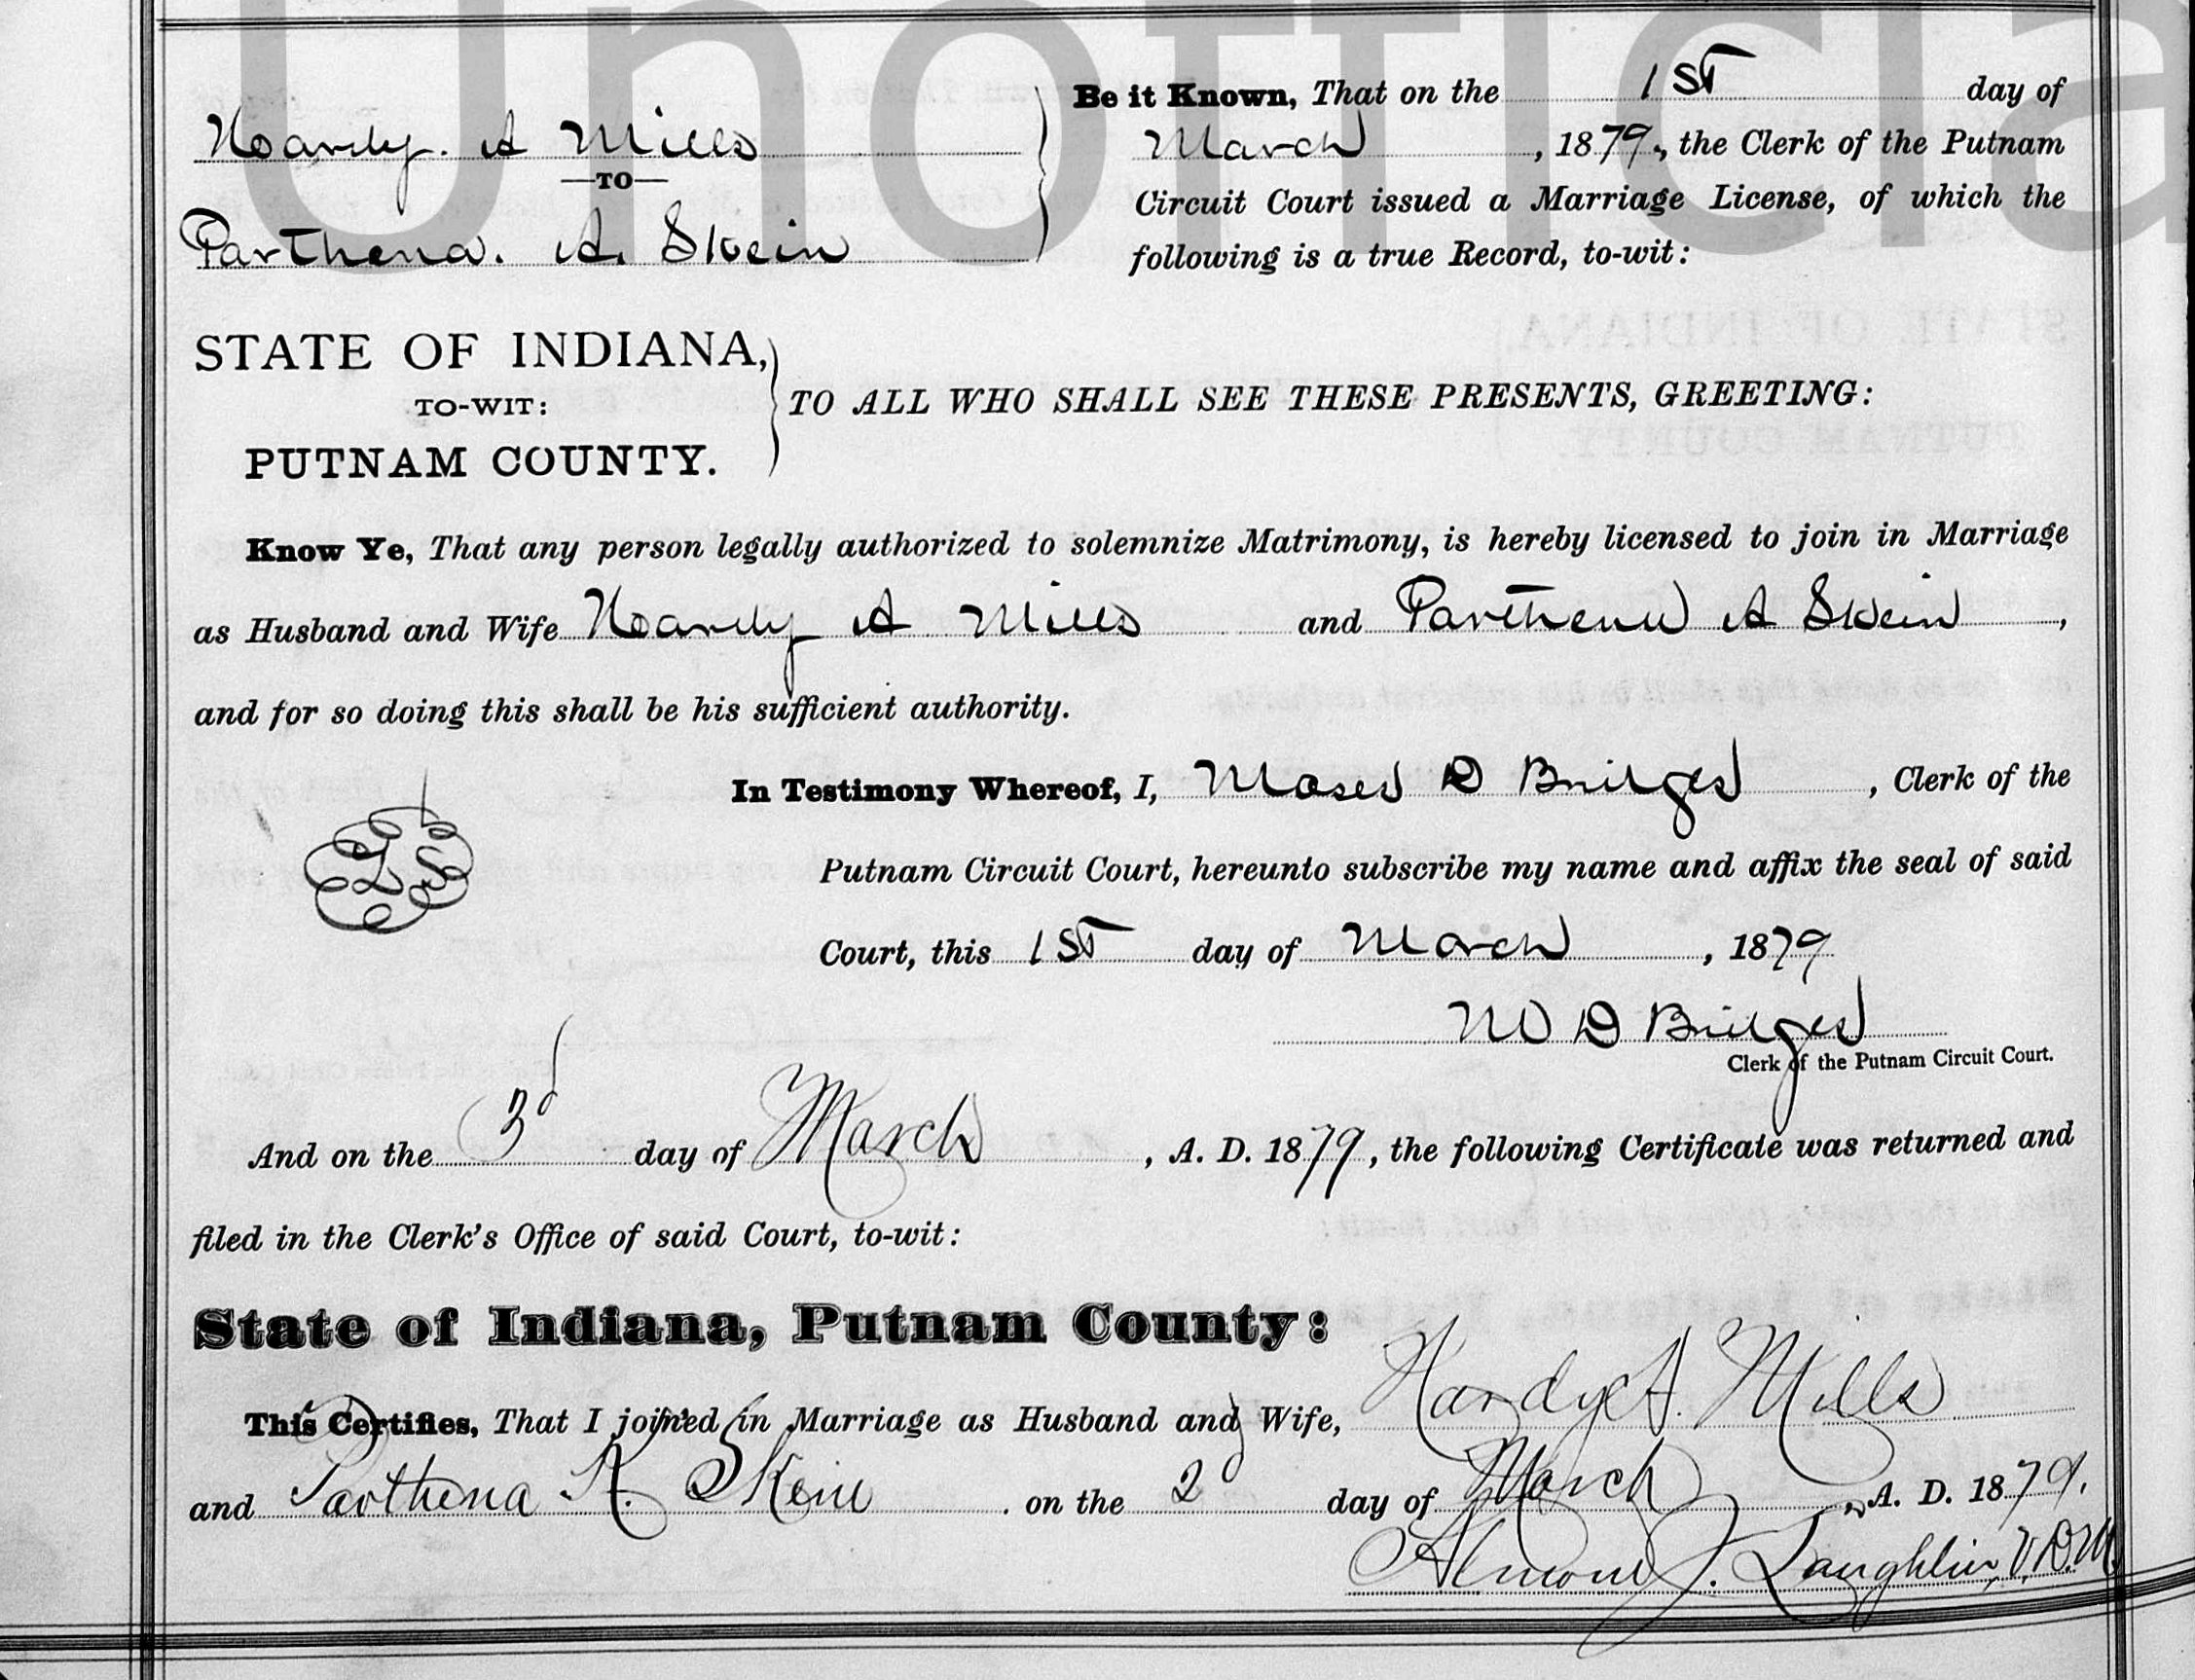 Unofficia
Be it Known, That on the 1ST day of
Hardy. A Mills
March, 1879, the Clerk of the Putnam
—TO—
Circuit Court issued a Marriage License, of which the
Parthena. A. Skein
following is a true Record, to-wit:
STATE OF INDIANA,
TO-WIT:
TO ALL WHO SHALL SEE THESE PRESENTS, GREETING:
PUTNAM COUNTY.
Know Ye, That any person legally authorized to solemnize Matrimony, is hereby licensed to join in Marriage
as Husband and Wife Hardy A Mills and Parthena A Skein,
and for so doing this shall be his sufficient authority.
In Testimony Whereof, I, Moses D Bridges, Clerk of the
LS
Putnam Circuit Court, hereunto subscribe my name and affix the seal of said
Court, this 1ST day of March, 1879
M D Bridges
Clerk of the Putnam Circuit Court.
And on the 3d day of March, A. D. 1879, the following Certificate was returned and
filed in the Clerk's Office of said Court, to-wit:
State of Indiana, Putnam County:
This Certifies, That I joined in Marriage as Husband and Wife, Hardy A. Mills
and Parthena A. Skein. on the 2d day of March, A. D. 1879.
J. Laughlin, V.D.M.